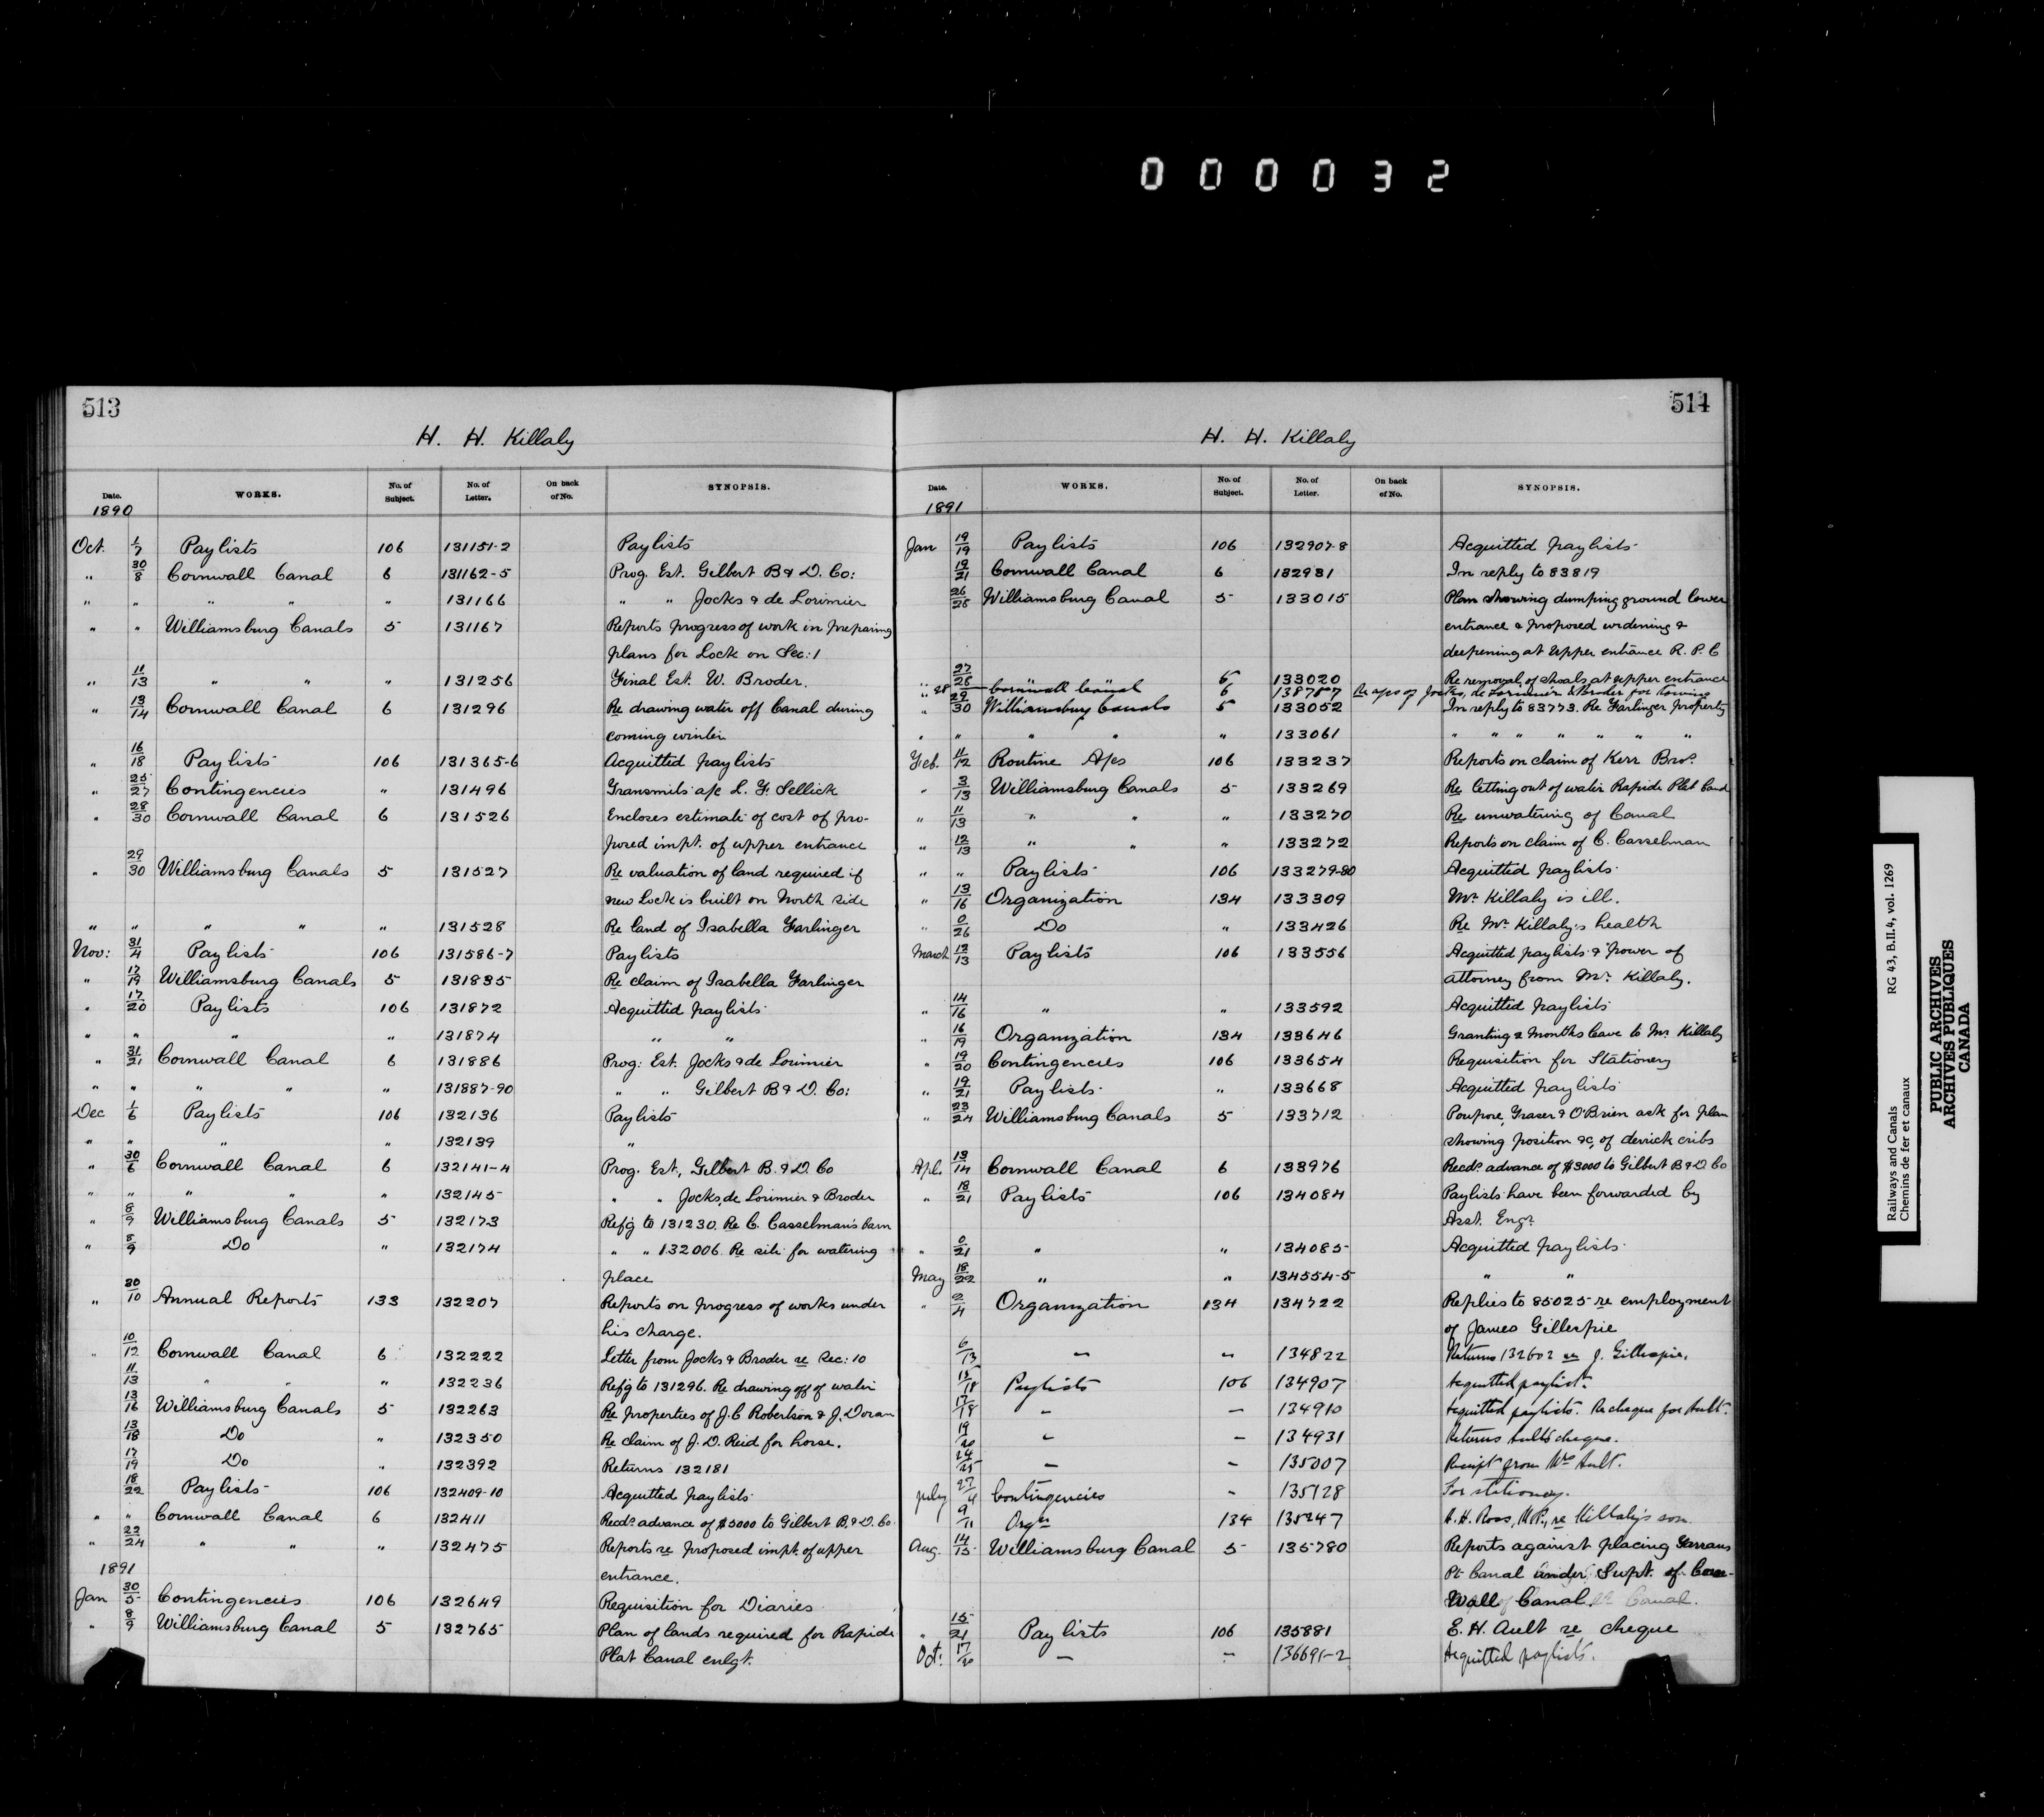 000032
513
H. H. Killaly
Date. WORKS. No. of Subject. No. of Letter. On back of No. SYNOPSIS.
1890
Oct. 1/7 Paylists 106 131151-2 Paylists
" 30/8 Cornwall Canal 6 131162-5 Prog. Est. Gilbert B & D. Co:
" " " " " 131166 " " Jocks & de Lorimier
" " Williamsburg Canals 5 131167 Reports progress of work in preparing
plans for Lock on Sec: 1
" 11/13 " " " 131256 Final Est. W. Broder.
" 13/14 Cornwall Canal 6 131296 Re drawing water off Canal during
coming winter
" 16/18 Paylists 106 131365-6 Acquitted paylists
" 25/27 Contingencies " 131496 Transmits a/c L. F. Sellick
" 28/30 Cornwall Canal 6 131526 Encloses estimate of cost of pro-
posed impt. of upper entrance
" 29/30 Williamsburg Canals 5 131527 Re valuation of land required if
new Lock is built on North side
" " " " " 131528 Re land of Isabella Farlinger
Nov: 31/4 Paylists 106 131586-7 Paylists
" 17/19 Williamsburg Canals 5 131835 Re claim of Isabella Farlinger
" 17/20 Paylists 106 131872 Acquitted paylists
" " " " 131874 " "
" 31/21 Cornwall Canal 6 131886 Prog: Est. Jocks & de Lorimier
" " " " " 131887-90 " " Gilbert B & D. Co:
Dec 1/6 Paylists 106 132136 Paylists
" " " " 132139 "
" 30/6 Cornwall Canal 6 132141-4 Prog. Est, Gilbert B. & D. Co
" " " " " 132145 " " Jocks, de Lorimier & Broder
" 8/9 Williamsburg Canals 5 132173 Ref'g to 131230. Re C. Casselman's barn
" 8/9 Do " 132174 " " 132006 Re site for watering
place
" 30/10 Annual Reports 133 132207 Reports on progress of works under
his charge.
" 10/12 Cornwall Canal 6 132222 Letter from Jocks & Broder re Sec: 10
11/13 " " " 132236 Ref'g to 131296. Re drawing off of water
13/16 Williamsburg Canals 5 132263 Re properties of J. C Robertson & J. Doran
13/18 Do " 132350 Re claim of J. D. Reid for horse.
17/19 Do " 132392 Returns 132181
18/22 Paylists 106 132409-10 Acquitted paylists
" " Cornwall Canal 6 132411 Recds. advance of $5000 to Gilbert B. & D. Co.
" 22/24 " " " 132475 Reports re proposed impt. of upper
entrance.
1891
Jan 30/5 Contingencies 106 132649 Requisition for Diaries
" 8/9 Williamsburg Canal 5 132765 Plan of lands required for Rapide
Plat Canal enlgt.
514
H. H. Killaly
Date. WORKS. No. of Subject. No. of Letter. On back of No. SYNOPSIS.
1891
Jan 19/19 Paylists 106 132907-8 Acquitted paylists
19/21 Cornwall Canal 6 132931 In reply to 83819
26/28 Williamsburg Canal 5 133015 Plan showing dumping ground lower
entrance & proposed widening &
deepening at upper entrance R. P. C
" 27/28 6 133020 Re removal of shoals at upper entrance
" 28 Cornwall Canal 6 Re a/cs of Jocks, de Lorimier & Broder for towing
" 29/30 Williamsburg Canals 5 133052 In reply to 83773. Re Farlinger property
" " " " " 133061 " " " " " " "
Feb. 11/12 Routine A/cs 106 133237 Reports on claim of Kerr Bros.
" 3/13 Williamsburg Canals 5 133269 Re letting out of water Rapide Plat Canal
" 11/13 " " " 133270 Re unwatering of Canal
" 12/13 " " " 133272 Reports on claim of C. Casselman
" " Paylists 106 133279-80 Acquitted paylists
" 13/16 Organization 134 133309 Mr. Killaly is ill.
" 0/26 Do " 133426 Re Mr. Killaly's health
March 12/13 Paylists 106 133556 Acquitted paylists & power of
attorney from Mr. Killaly.
" 14/16 " " 133592 Acquitted paylists
" 16/19 Organization 134 133646 Granting 2 months leave to Mr Killaly
" 19/20 Contingencies 106 133654 Requisition for Stationery
" 19/21 Paylists " 133668 Acquitted paylists
" 23/24 Williamsburg Canals 5 133712 Poupore, Fraser & O'Brien ask for plan
showing position &c, of derrick cribs
Apl. 13/14 Cornwall Canal 6 133976 Recds. advance of $3000 to Gilbert B & D. Co
" 18/21 Paylists 106 134084 Paylists have been forwarded by
Asst. Engr.
" 0/21 " " 134085 Acquitted paylists
May 18/22 " " 134554-5 " "
" 2/4 Organization 134 134722 Replies to 85025 re employment
of James Gillespie
6/13 " " 134822 Returns 132602 re J. Gillespie.
15/18 Paylists 106 134907 Acquitted paylists.
17/18 - - 134910 Acquitted paylists. Re cheque for Ault.
19/20 " - 134931 Returns Ault's cheque.
24/25 - - 135007 Receipt from Wm Ault.
July 27/4 Contingencies - 135128 For stationery.
9/11 Orgn 134 135247 A. H. Ross, M.P., re Killaly's son.
Aug. 14/15 Williamsburg Canal 5 135780 Reports against placing Farrans
Pt. Canal under Supt. of Corn-
wall Canal.
" 15/21 Paylists 106 135881 E. H. Ault re cheque
Oct. 17/20 - - 136691-2 Acquitted paylists.
Railways and Canals RG 43, B.II.4, vol. 1269
Chemins de fer et canaux
PUBLIC ARCHIVES
ARCHIVES PUBLIQUES
CANADA